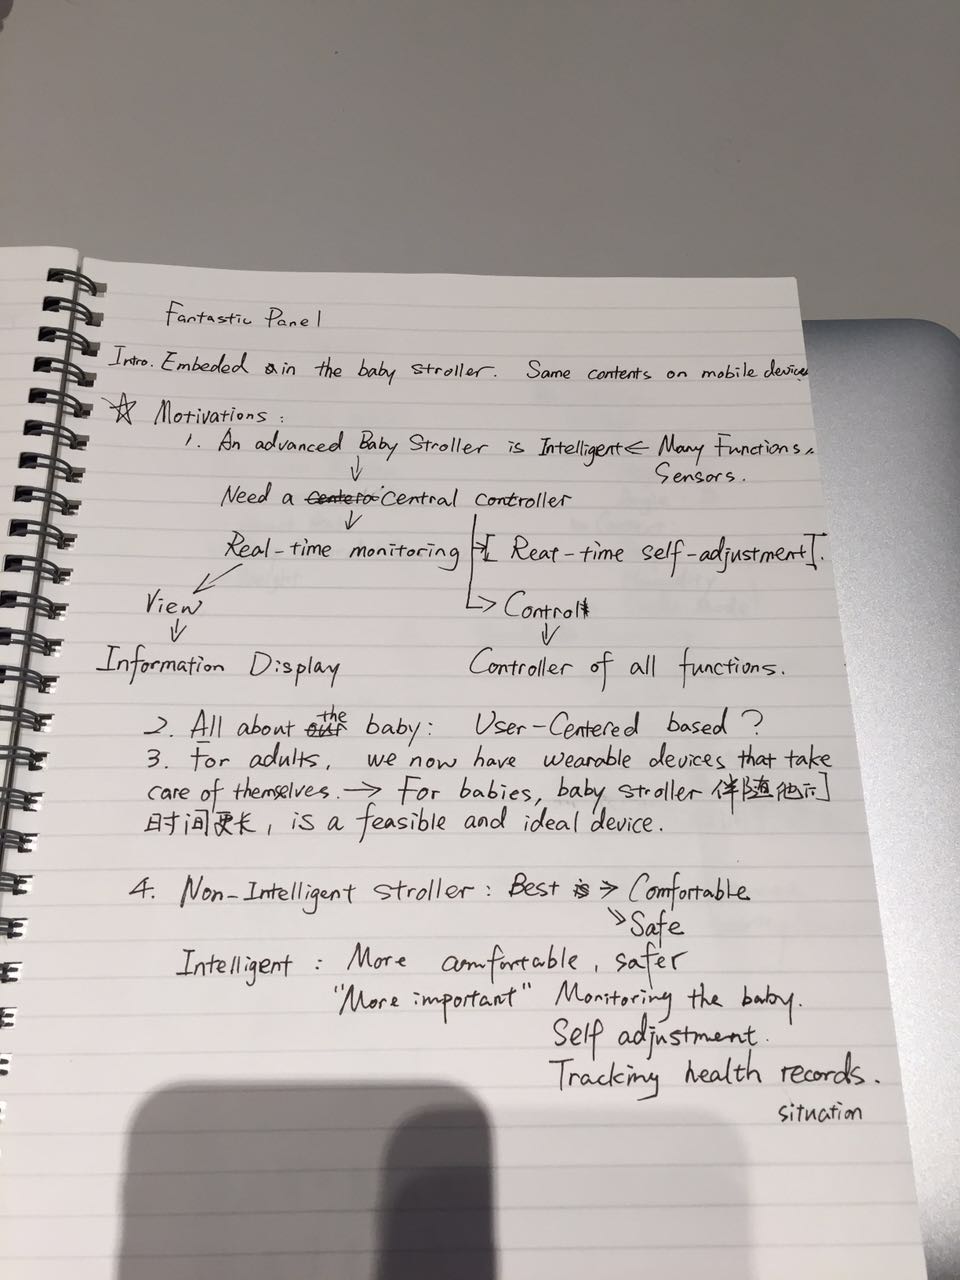 Fantastic Panel
Intro. Embeded in the baby stroller. Same contents on mobile device
☆ Motivations :
1. An advanced Baby Stroller is Intelligent ← Many Functions,
Sensors.
↓
Need a Central controller
↓
Real-time monitoring → [ Real-time self-adjustment ].
View → Control
↓ ↓
Information Display Controller of all functions.
2. All about the baby : User-Centered based ?
3. For adults, we now have wearable devices that take
care of themselves. → For babies, baby stroller 伴随他们
时间更长, is a feasible and ideal device.
4. Non-Intelligent stroller : Best → Comfortable
→ Safe
Intelligent : More comfortable, safer
"More important" Monitoring the baby.
Self adjustment.
Tracking health records.
situation